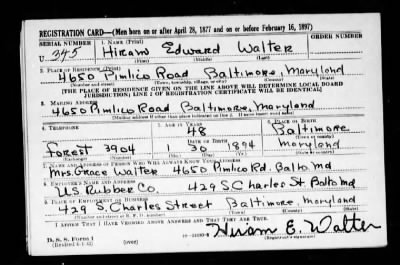 REGISTRATION CARD—(Men born on or after April 28, 1877 and on or before February 16, 1897)
SERIAL NUMBER 1. NAME (Print) ORDER NUMBER
U 345 Hiram Edward Walter
(First) (Middle) (Last)
2. PLACE OF RESIDENCE (Print)
4650 Pimlico Road Baltimore, Maryland
(Number and street) (Town, township, village, or city) (County) (State)
[THE PLACE OF RESIDENCE GIVEN ON THE LINE ABOVE WILL DETERMINE LOCAL BOARD
JURISDICTION; LINE 2 OF REGISTRATION CERTIFICATE WILL BE IDENTICAL]
3. MAILING ADDRESS
4650 Pimlico Road Baltimore, Maryland
[Mailing address if other than place indicated on line 2. If same insert word same]
4. TELEPHONE 5. AGE IN YEARS 6. PLACE OF BIRTH
48 Baltimore
DATE OF BIRTH (Town or county)
Forest 3904 1 30 1894 Maryland
(Exchange) (Number) (Mo.) (Day) (Yr.) (State or country)
7. NAME AND ADDRESS OF PERSON WHO WILL ALWAYS KNOW YOUR ADDRESS
Mrs. Grace Walter 4650 Pimlico Rd. Balto Md
8. EMPLOYER'S NAME AND ADDRESS
US Rubber Co. 429 S Charles St Balto Md
9. PLACE OF EMPLOYMENT OR BUSINESS
429 S. Charles Street Baltimore, Maryland
(Number and street or R. F. D. number) (Town) (County) (State)
I AFFIRM THAT I HAVE VERIFIED ABOVE ANSWERS AND THAT THEY ARE TRUE.
D. S. S. Form 1
(Revised 4-1-42) (over)
Hiram E. Walter
(Registrant's signature)